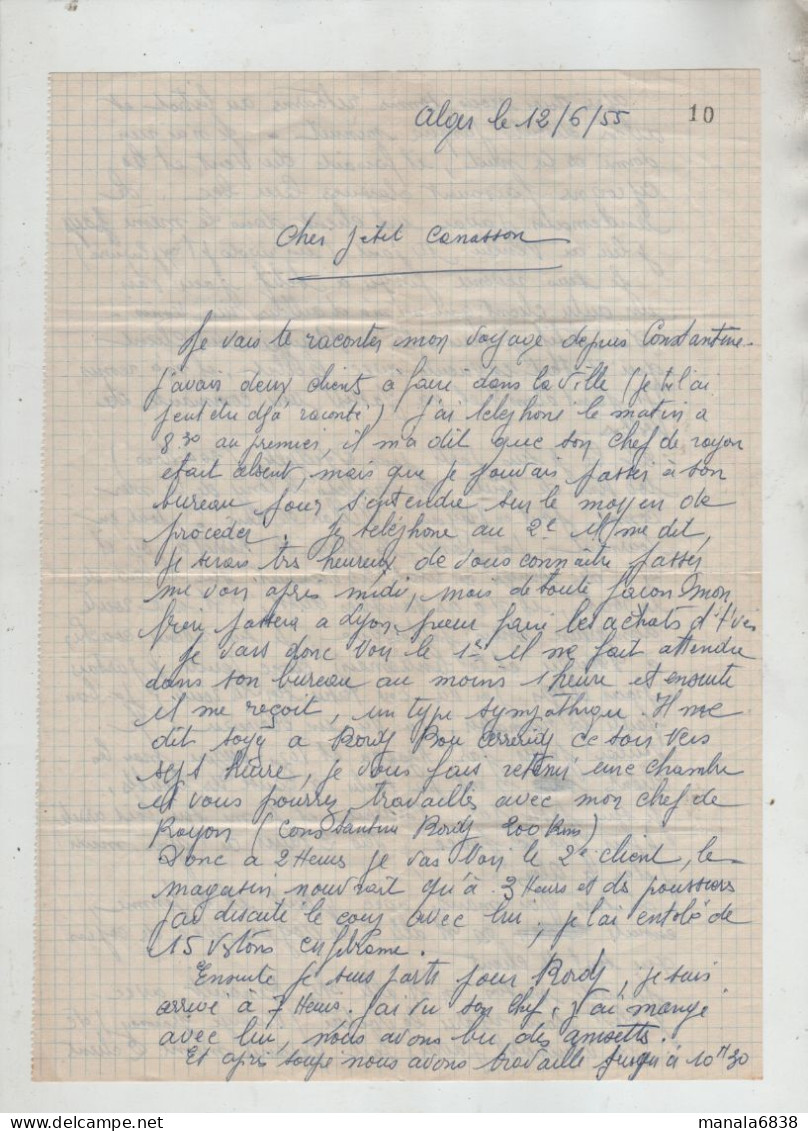 Alger le 12/6/55
10
Cher petit Canasson
Je vais te raconter mon voyage depuis Constantine.
J'avais deux client à faire dans la ville (je te l'ai
peut être djà raconté) J'ai telephoné le matin a
8 30 au premier, il m a dit que son chef de rayon
etait absent, mais que je pouvais passer à son
bureau pour s'entendre sur le moyen de
proceder. Je telephone au 2e il me dit,
je serais trs heureux de vous connaitre passer
me voir après midi, mais de toute façon mon
frere passera a Lyon pour faire les achats d'
Je vais donc voir le 1er il me fait attendre
dans son bureau au moins 1 heure et ensuite
il me reçoit, un type sympathique. Il me
dit soyez a Bordj Bou Arreridj ce soir vers
sept heure, je vous fais retenir une chambre
et vous pourrez travailler avec mon chef de
Rayon (Constantine Bordj 200 Kms)
Donc a 2 Heures je vas voir le 2e client, le
magasin n'ouvrait qu'à 3 Heures et ds poussiers
j'ai discuté le coup avec lui, je l'ai entolé de
15 vstons
Ensuite je suis parti pour Bordj, je suis
arrivé à 7 Heures. J'ai vu son chef, j'ai mangé
avec lui, nous avons bu des anisetts.
Et après soupé nous avons travaillé jusqu'à 10H30
manala6838